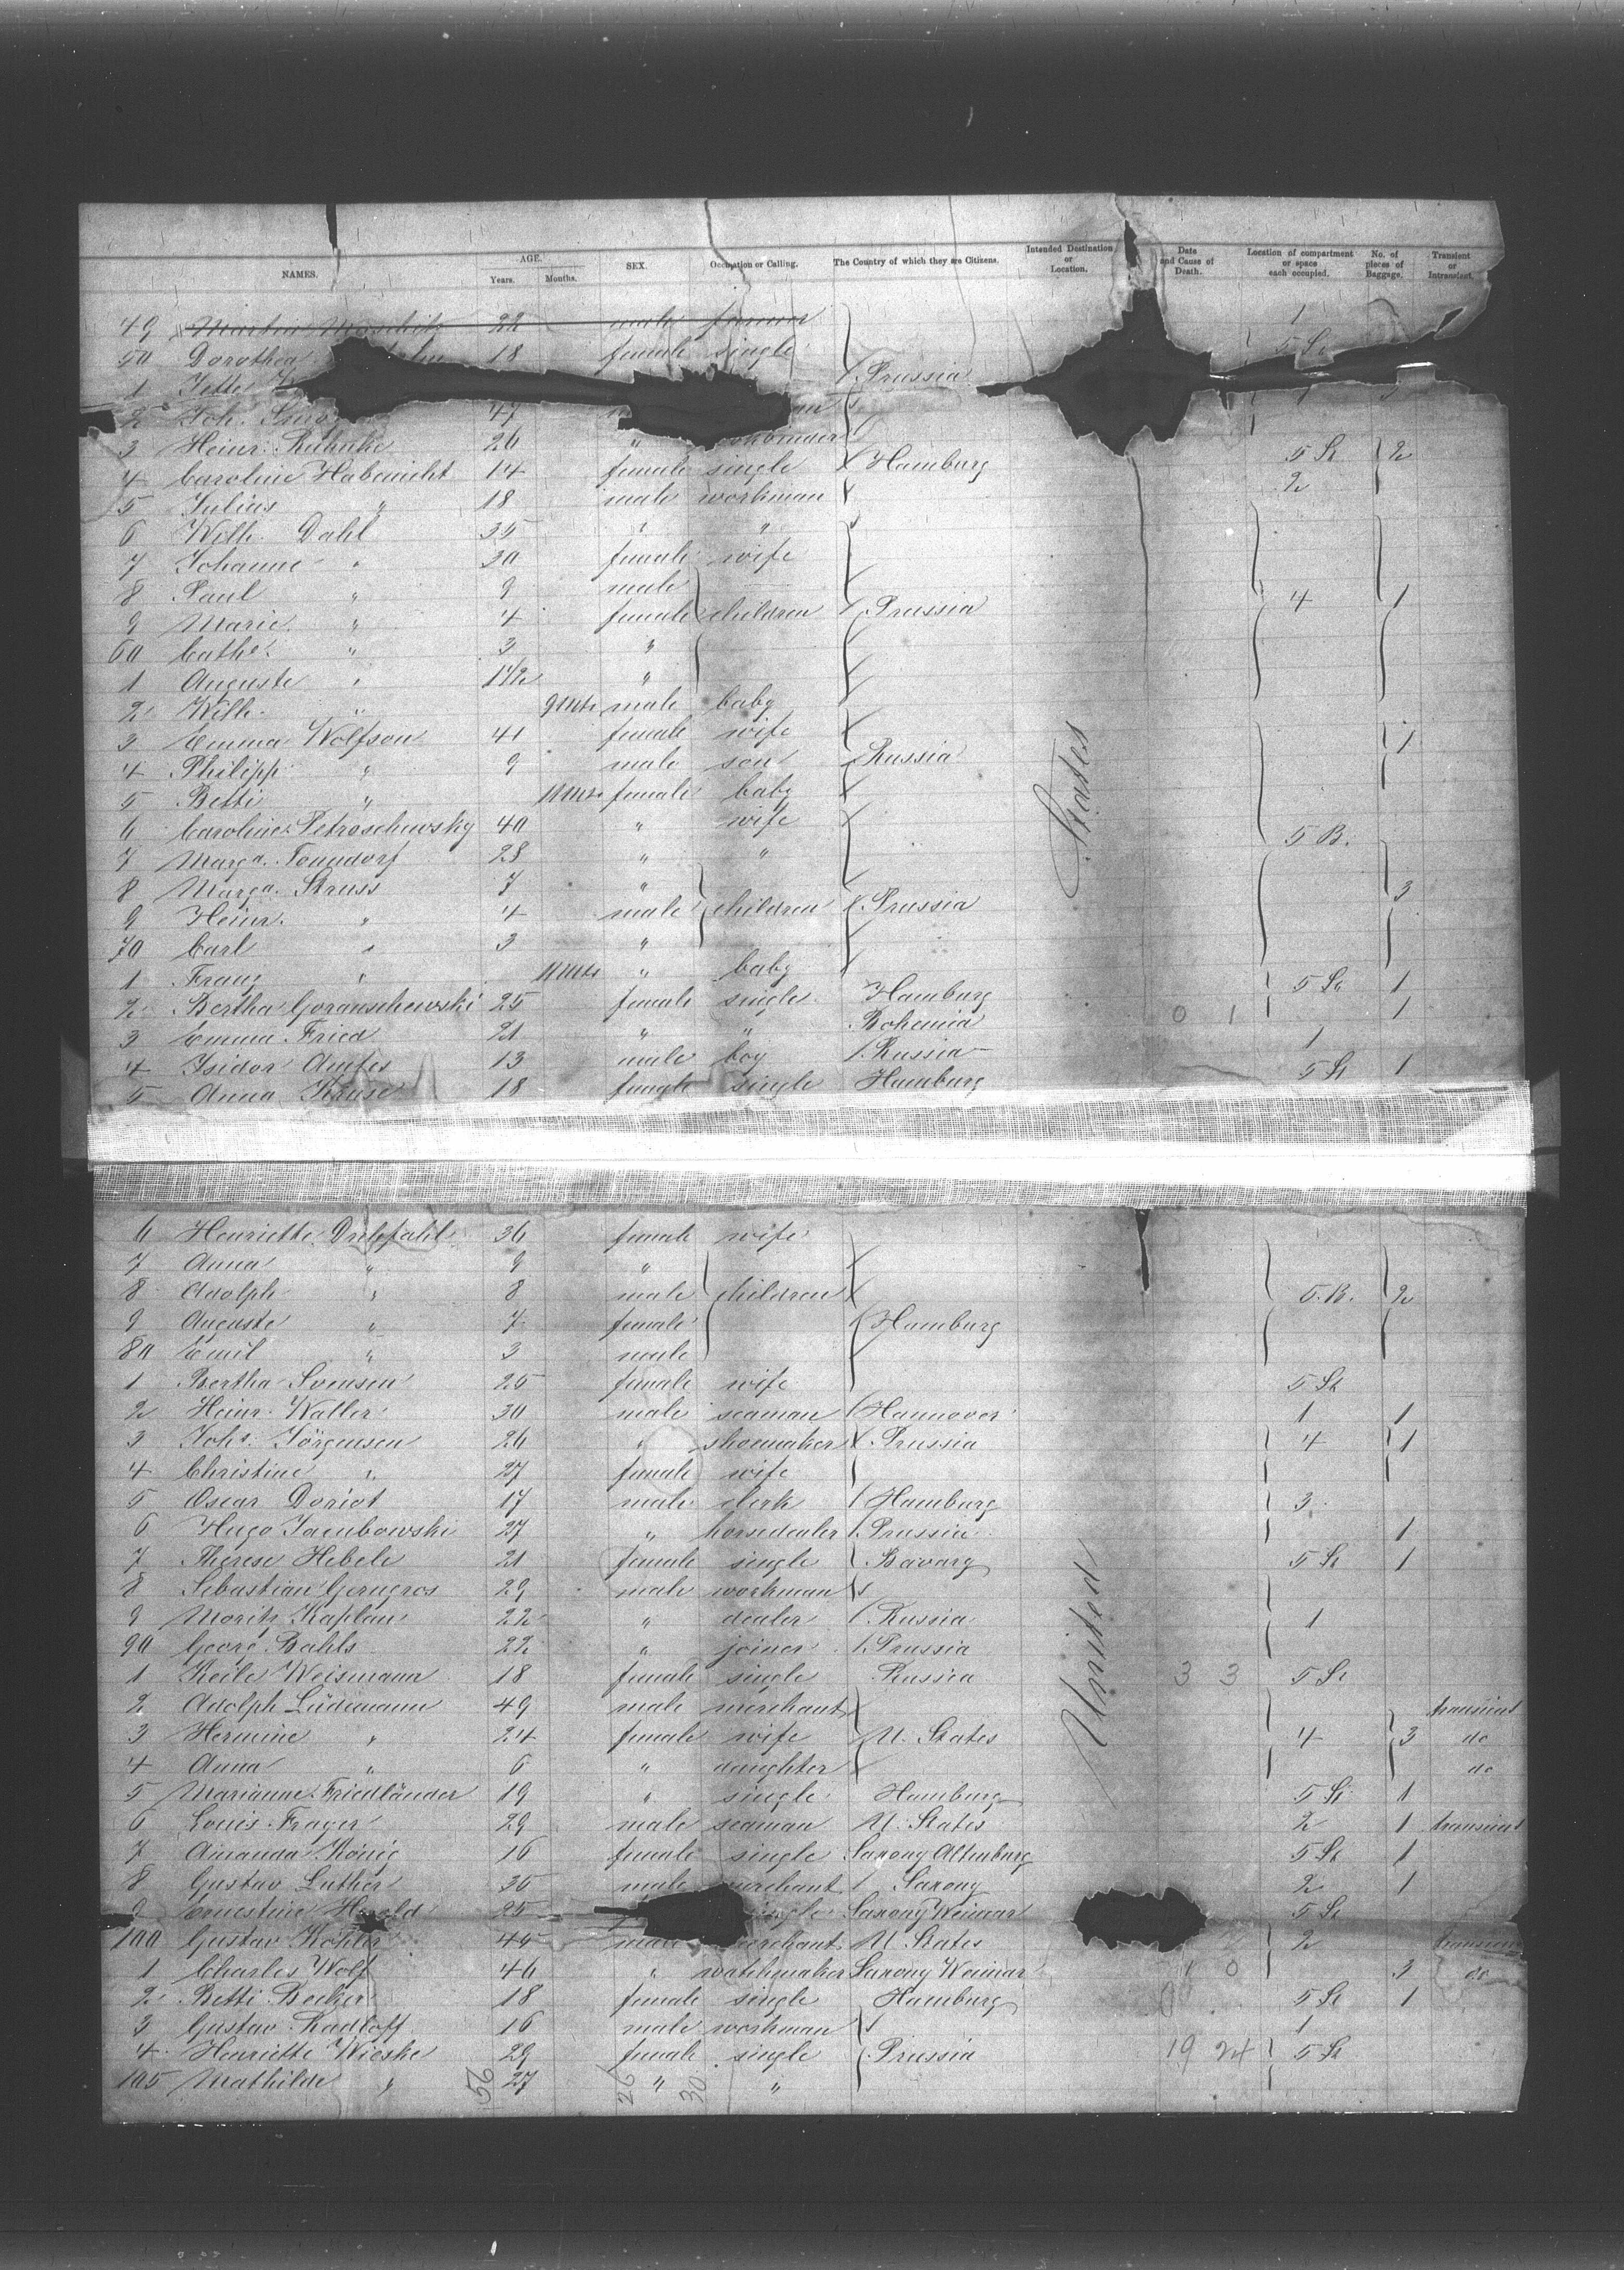 NAMES. AGE. Years. Months. SEX. Occupation or Calling. The Country of which they are Citizens. Intended Destination or Location. Date and Cause of Death. Location of compartment or space each occupied. No. of pieces of Baggage. Transient or Intransient.
49 Martin 22 male farmer 1
50 Dorothea 18 female single 5 St
1 Jette Prussia
2 Joh. 47
3 Heinr. 26 " 5 St 2
4 Caroline Habenicht 14 female single Hamburg 2
5 Julius " 18 male workman
6 Wilh. Dahl 35 " "
7 Johanne " 30 female wife
8 Paul " 9 male
9 Marie " 4 female children Prussia 4 1
60 Cathe. " 3 "
1 Auguste " 1 1/2 "
2 Wilh. " 9 mts male baby
3 Emma Wolfson 41 female wife 1
4 Philipp " 9 male son Russia
5 Betti " 11 mts female baby
6 Caroline Petroschewsky 40 " wife 5 B.
7 Marga. Tonndorf 28 " "
8 Marga. Struss 7 " 3
9 Heinr. " 4 male children Prussia
70 Carl " 3 "
1 Franz " 11 mts " baby
2 Bertha Goranschewski 25 female single Hamburg 5 St 1
3 Emma Fried 21 " " Bohemia 0 1 1
4 Isidor 13 male boy Russia 1
5 Anna Kruse 18 female single Hamburg 5 St 1
6 Henriette Drehfahl 36 female wife
7 Anna " 9 "
8 Adolph " 8 male children 5. B. 2
9 Auguste " 7 female Hamburg
80 Emil " 3 male
1 Bertha Svensen 25 female wife 5 St
2 Heinr. Waller 30 male seaman Hannover 1 1
3 Johs. Jörgensen 26 " shoemaker Prussia 4 1
4 Christine " 27 female wife
5 Oscar Doriot 17 male clerk Hamburg 3
6 Hugo Jacubowski 27 " horsedealer Prussia 1
7 Therese Hebele 21 female single Bavarg 5 St 1
8 Sebastian Gerngros 29 male workman
9 Moritz Kaplan 22 " dealer Russia 1
90 Georg Bahls 22 " joiner Prussia
1 Reile Weismann 18 female single Russia 3 3 5 St
2 Adolph Lüdemann 49 male merchant transient
3 Hermine " 24 female wife U. States 4 3 do
4 Anna " 6 " daughter do
5 Marianne Friedländer 19 " single Hamburg 5 St 1
6 Louis Frager 29 male seaman U. States 2 1 transient
7 Amanda König 16 female single Saxony Altenburg 5 St 1
8 Gustav Luther 36 male merchant Saxony 2 1
9 Ernestine Herold 25 single Saxony Weimar 5 St
100 Gustav Kohler 45 male merchant U States 2 transient
1 Charles Wolf 46 " watchmaker Saxony Weimar 1 0 3 do
2 Betti Becker 18 female single Hamburg 5 St 1
3 Gustav Radloff 16 male workman 1
4 Henriette Wieske 29 female single Prussia 19 24 5 St
105 Mathilde " 27 " "
56 26 30
United States